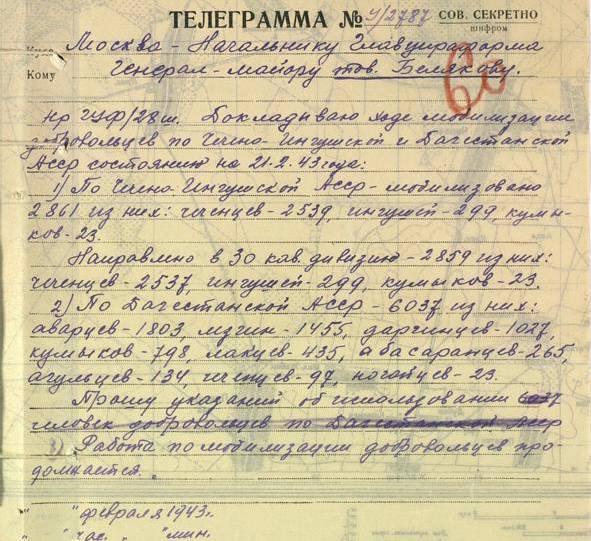 ТЕЛЕГРАММА № У/2787 СОВ. СЕКРЕТНО
шифром
Куда Москва - Начальнику Главупраформа
Кому Генерал-майору тов. Белякову.
60
нр ГУФ/28ш. Докладываю ходе мобилизации
добровольцев по Чечено-Ингушской и Дагестанской
Асср состоянию на 21.2.43 года:
1) По Чечено-Ингушской Асср - мобилизовано
2861 из них: чеченцев - 2539, ингушей - 299, кумы-
ков - 23.
Направлено в 30 кав. дивизию - 2859 из них:
чеченцев - 2537, ингушей - 299, кумыков - 23.
2) По Дагестанской Асср - 6037 из них:
аварцев - 1803, лезгин - 1455, даргинцев - 1027,
кумыков - 798, лакцев - 435, абасаранцев - 265,
агульцев - 134, чеченцев - 97, ногайцев - 23.
Прошу указаний об использовании 6037
человек добровольцев по Дагестанской Асср
3) Работа по мобилизации добровольцев про-
должается.
" " февраля 1943 г.
" " час. " " мин.